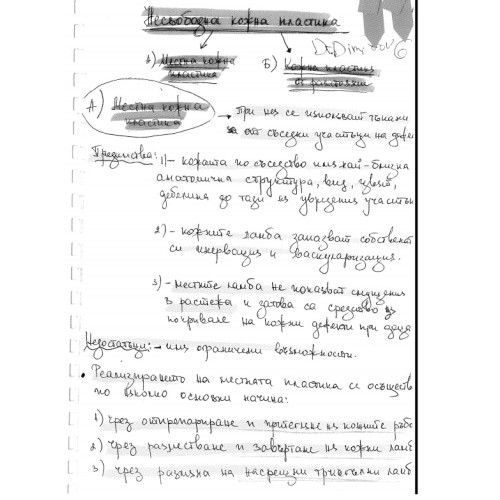 Несвободна кожна пластика
А) Местна кожна пластика
Б) Кожна пластика от разстояние
А) Местна кожна пластика
→ При нея се използват тъкани
от съседни участъци на дефек
Предимства: 1) - кожата по съседство има най-близка
анатомична структура, вид, цвят,
дебелина до тази на увредения участък
2) - кожните ламба запазват собствена
си инервация и васкуларизация.
3) - местните ламба не показват смущения
в растежа и затова са средство на
покриване на кожни дефекти при деца
Недостатъци: - има ограничени възможности.
• Реализирането на местната пластика се осъществ
по няколко основни начина:
1) чрез отпрепариране и притегляне на кожните ръбо
2) чрез разместване и завъртане на кожни ламб
3) чрез размяна на насрещни триъгълни ламб